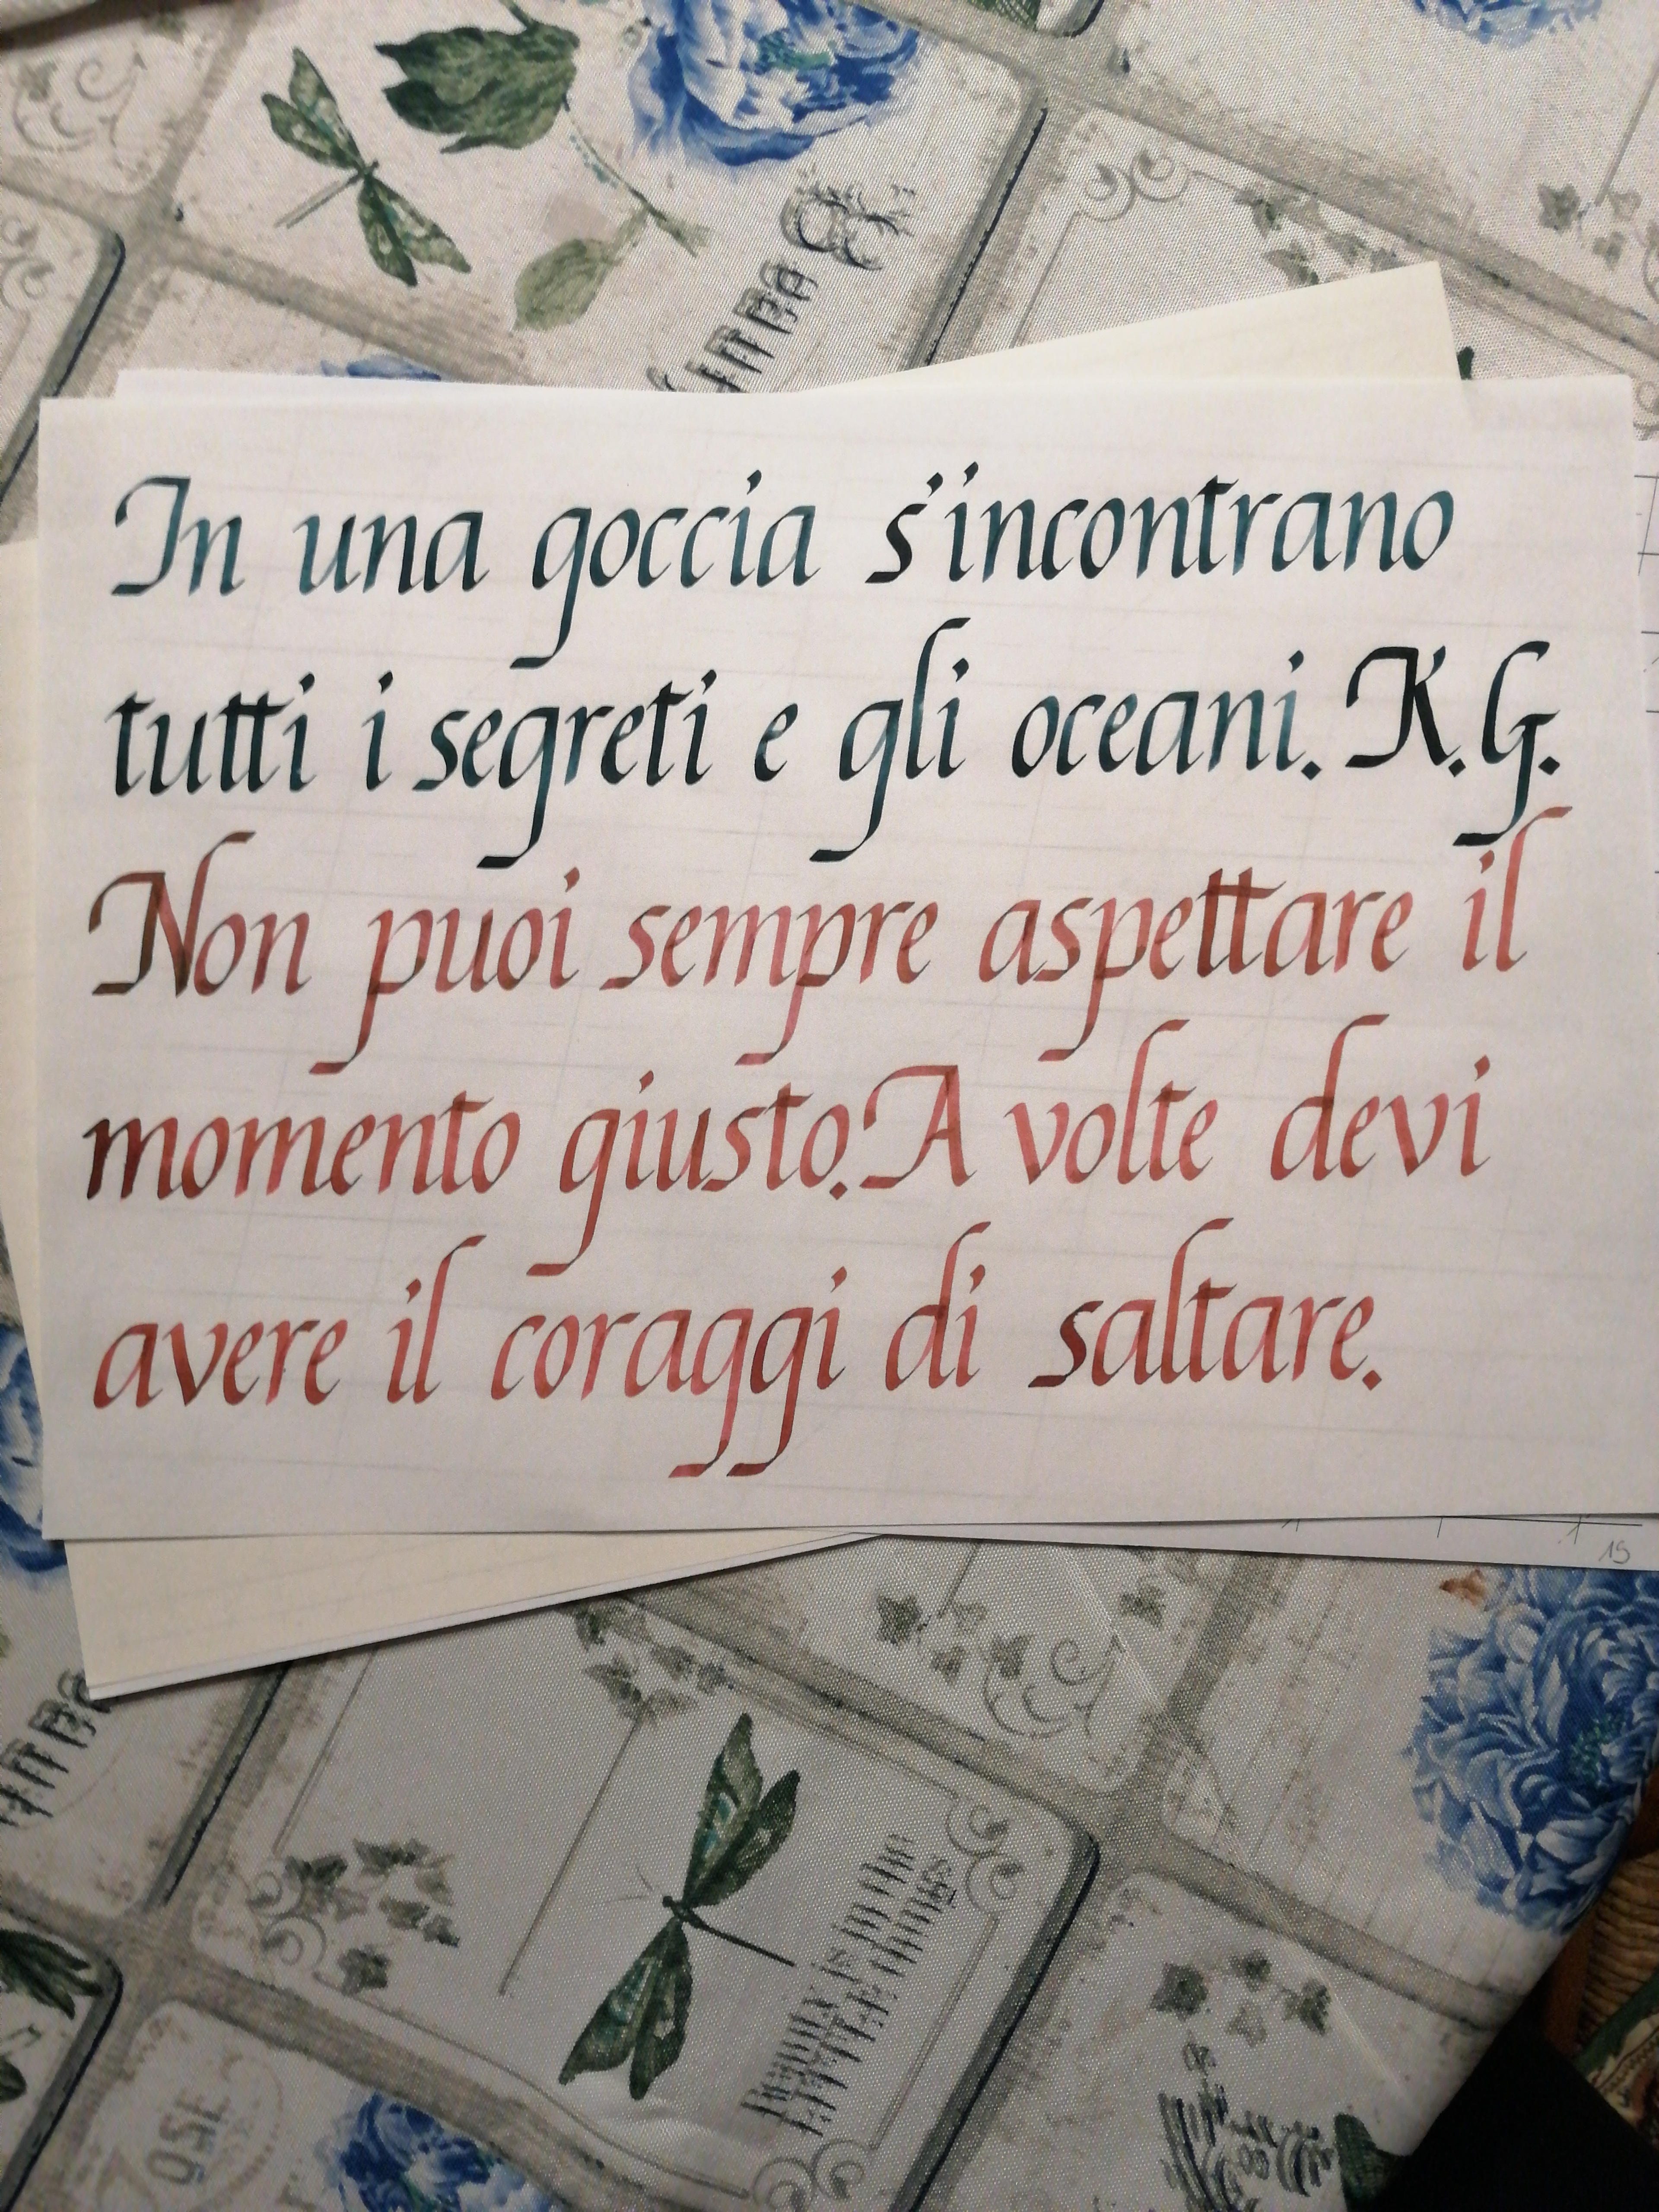 In una goccia s'incontrano
tutti i segreti e gli oceani. K.G.
Non puoi sempre aspettare il
momento giusto. A volte devi
avere il coraggi di saltare.
15
Beauty is in the
LITTLE things